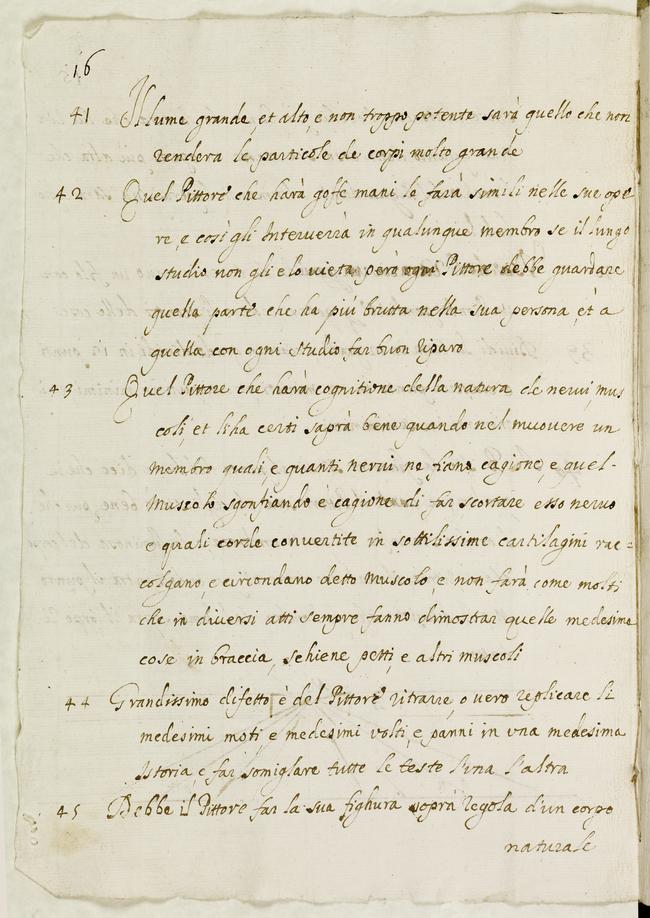 16
41 Il lume grande, et alto, e non troppo potente sarà quello che non
renderà le particole de corpi molto grande
42 Quel Pittore che harà goffe mani le farà simili nelle sue ope
re, e così gli Interverrà in qualungue membro se il lungo
studio non gli elo vieta però ogni Pittore debbe guardare
quella parte che ha più brutta nella sua persona, et à
quella con ogni studio far buon riparo
43 Quel Pittore che harà cognitione della natura de nervi, mus
coli, et li ha certi saprà bene quando nel muovere un
membro quali, e quanti nervi ne fiano cagione, e quel-
Muscolo sgonfiando è cagione di far scortare esso nervo
e quali corde convertite in sottilissime cartilagini rac=
colgano, e circondano detto muscolo, e non farà come molti
che in diversi atti sempre fanno dimostrar quelle medesime
cose in braccia, schiene, petti, e altri muscoli
44 Grandissimo difetto è del Pittore ritrarre, o vero replicare li
medesimi moti, e medesimi volti, e panni in una medesima
Istoria, e far somiglare tutte le teste l'una l'altra
45 Debbe il Pittore far la sua fighura sopra regola d'un corpo
naturale